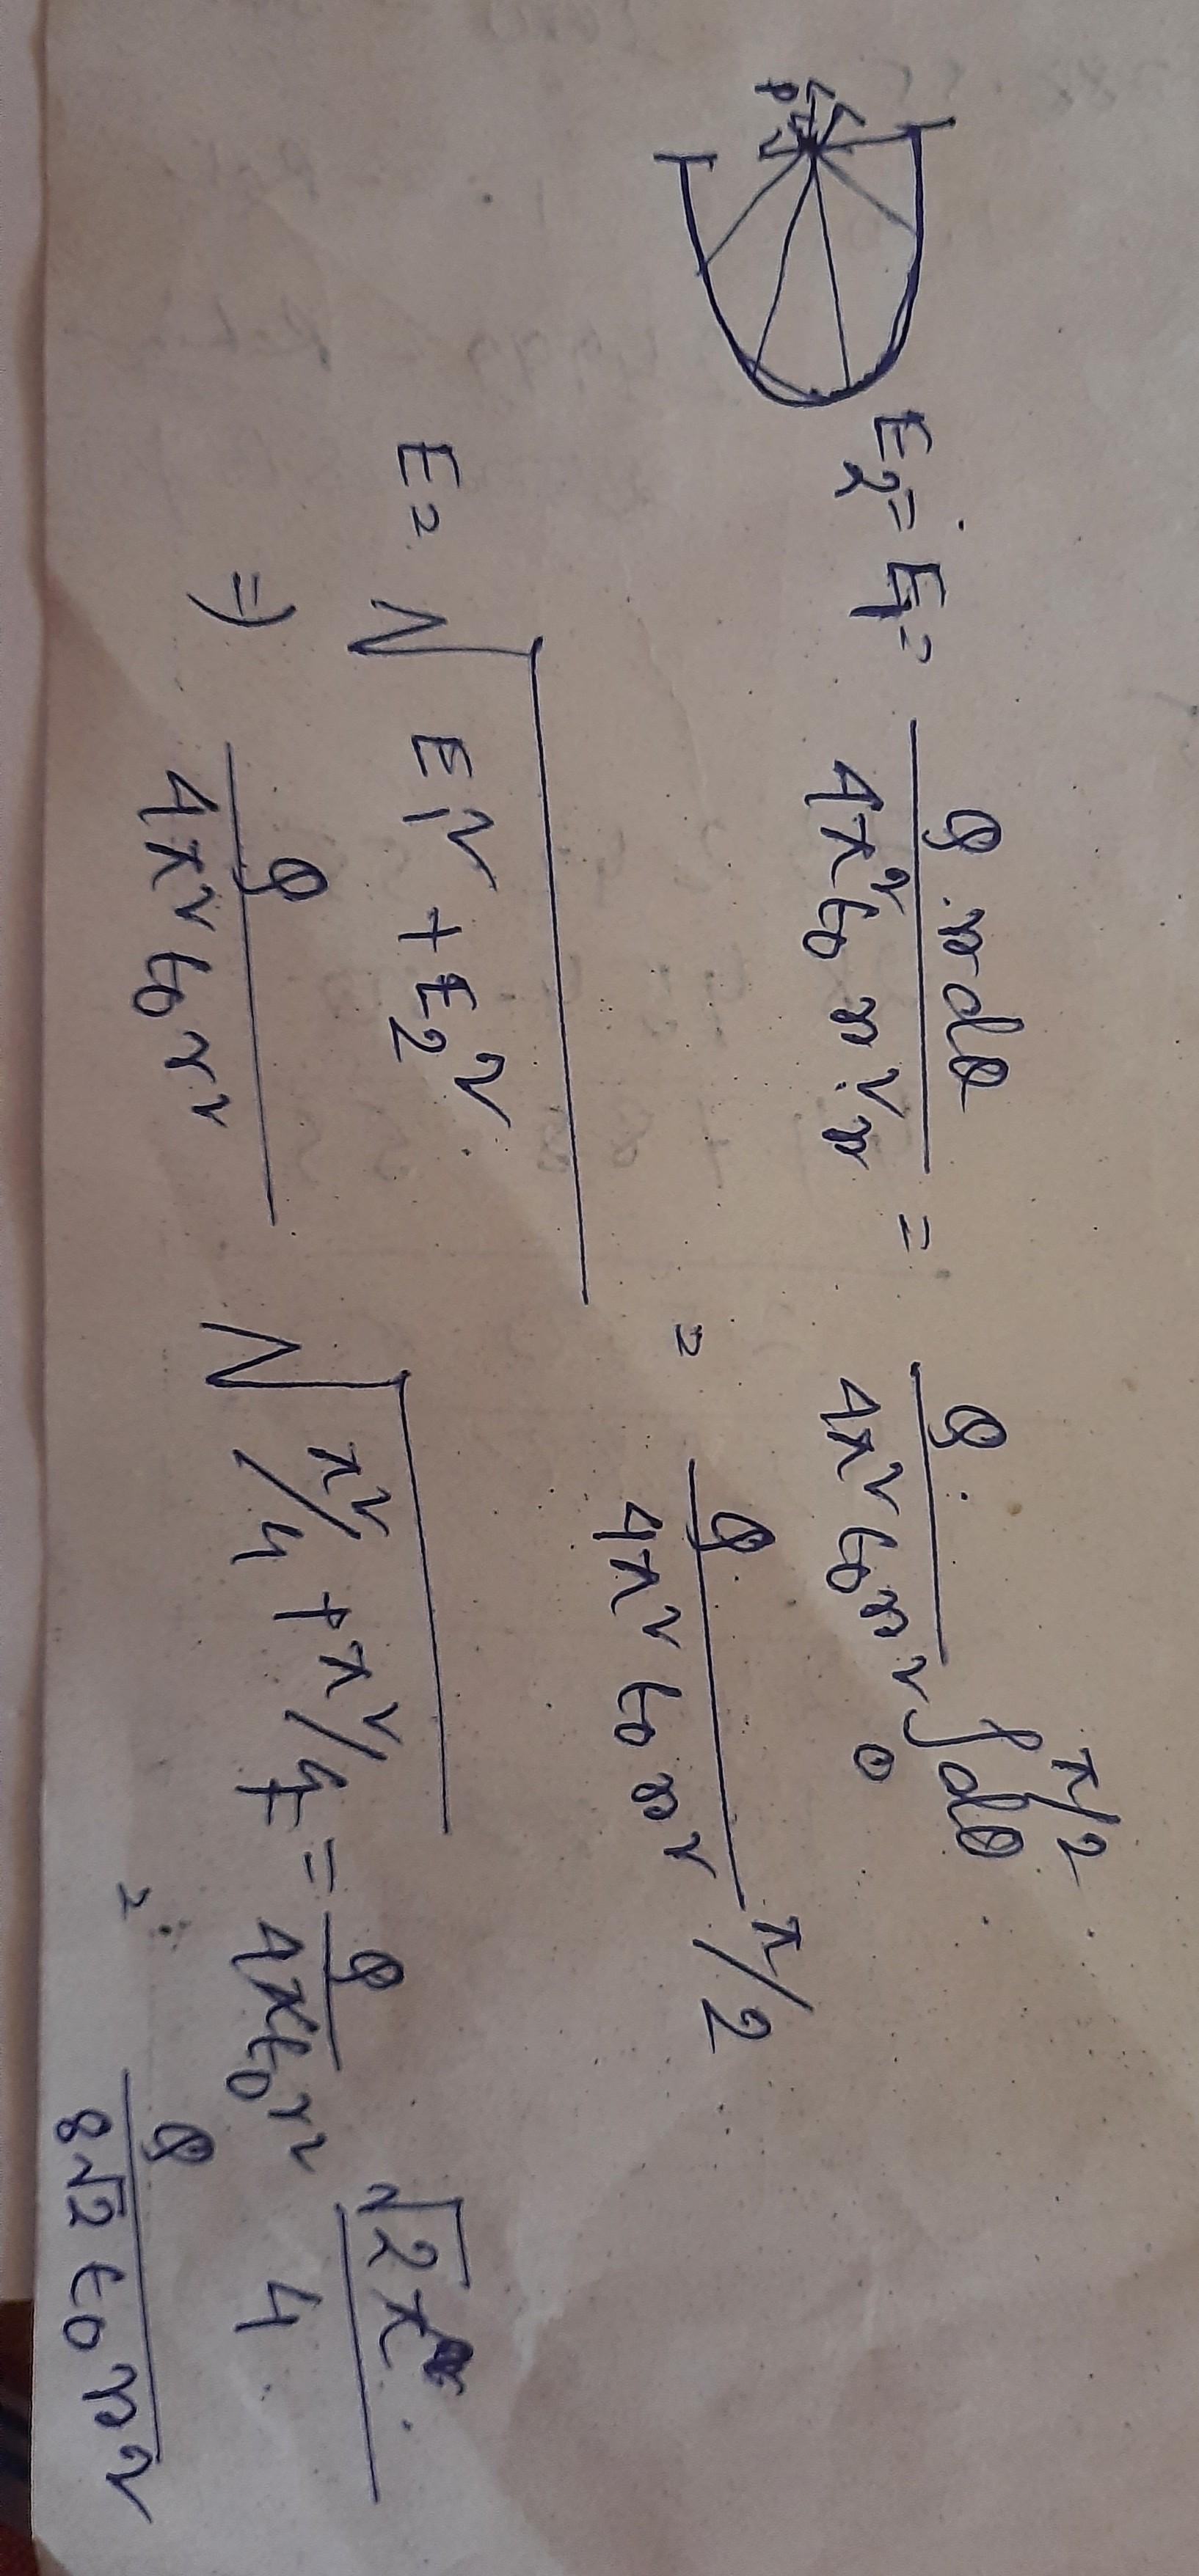 P
E₂ = E₁ = Q · rdθ / 4π²ε₀ r² · r = Q / 4π² ε₀ r² ∫₀^π/2 dθ
= Q / 4π² ε₀ r² π/2
E = √ E₁² + E₂²
=) Q / 4π² ε₀ r² √ π²/4 + π²/4 = Q / 4πε₀ r² √2π / 4
= Q / 8√2 ε₀ r²